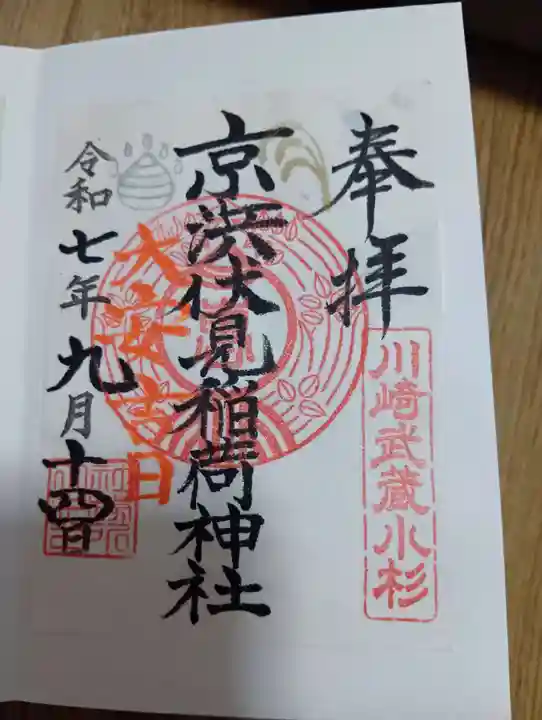 奉拝
川崎武蔵小杉
京濱伏見稲荷神社
大安吉日
令和七年九月十四日